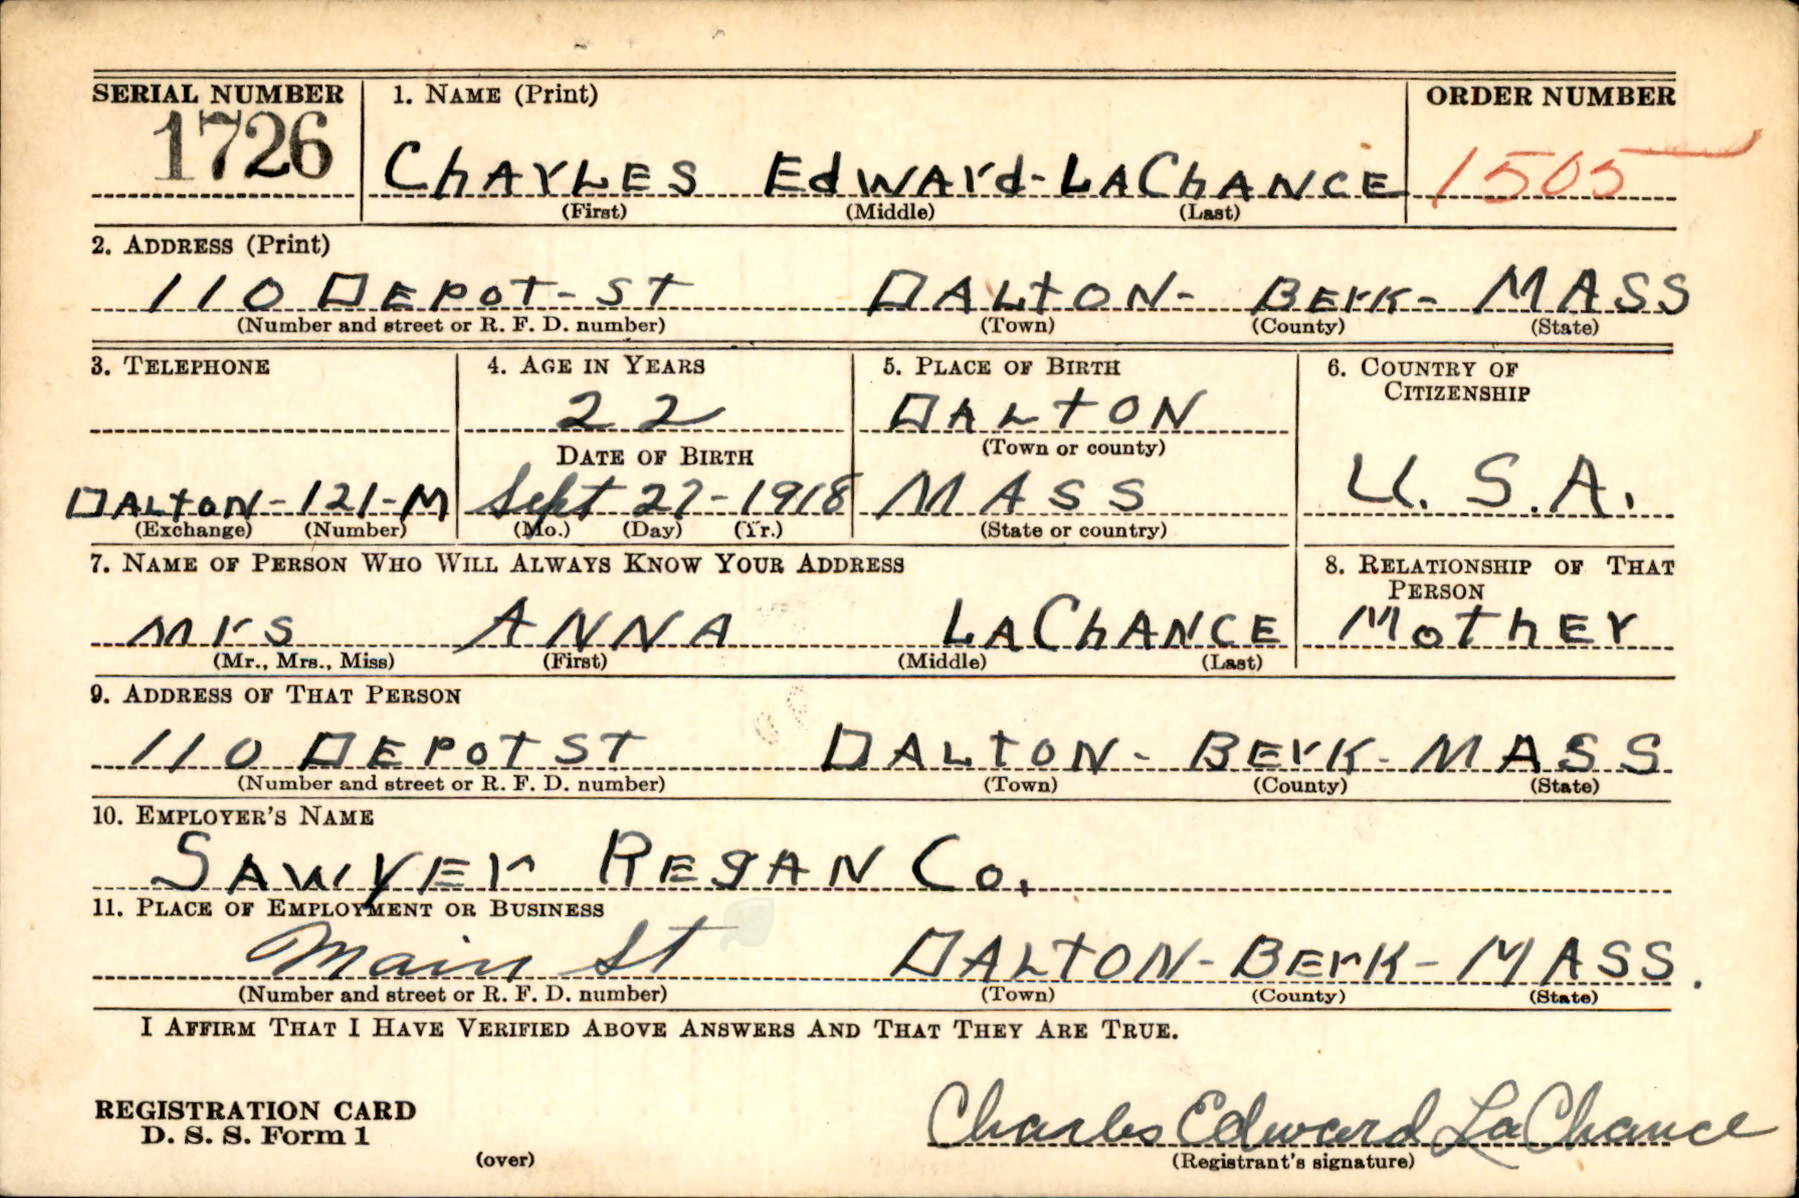 SERIAL NUMBER 1. NAME (Print) ORDER NUMBER
1726 ChArLES EdwArd-LAChANCE 1505
(First) (Middle) (Last)
2. ADDRESS (Print)
110 DEPOT-ST DALTON- BErK- MASS
(Number and street or R. F. D. number) (Town) (County) (State)
3. TELEPHONE 4. AGE IN YEARS 5. PLACE OF BIRTH 6. COUNTRY OF CITIZENSHIP
22 DALTON
DATE OF BIRTH (Town or county)
DALTON-121-M Sept 27-1918 MASS U.S.A.
(Exchange) (Number) (Mo.) (Day) (Yr.) (State or country)
7. NAME OF PERSON WHO WILL ALWAYS KNOW YOUR ADDRESS 8. RELATIONSHIP OF THAT PERSON
Mrs ANNA LAChANCE MothEr
(Mr., Mrs., Miss) (First) (Middle) (Last)
9. ADDRESS OF THAT PERSON
110 DEPOT ST DALTON- BErK- MASS
(Number and street or R. F. D. number) (Town) (County) (State)
10. EMPLOYER'S NAME
SAWYEr REgAN Co.
11. PLACE OF EMPLOYMENT OR BUSINESS
Main St DALTON-BErK-MASS.
(Number and street or R. F. D. number) (Town) (County) (State)
I AFFIRM THAT I HAVE VERIFIED ABOVE ANSWERS AND THAT THEY ARE TRUE.
REGISTRATION CARD
D. S. S. Form 1 Charles Edward LaChance
(over) (Registrant's signature)